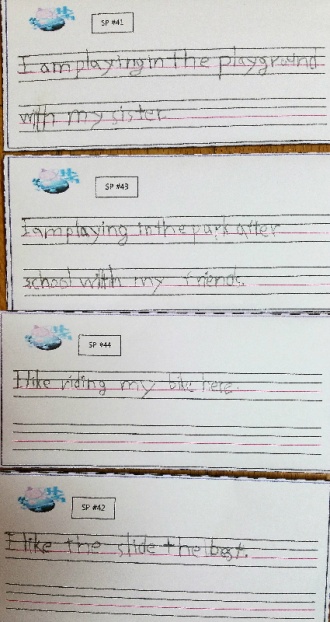 SP #41
I am playing in the playground
with my sister
SP #43
I am playing in the park after
school with my friends.
SP #44
I like riding my bike here.
SP #42
I like the slide the best.